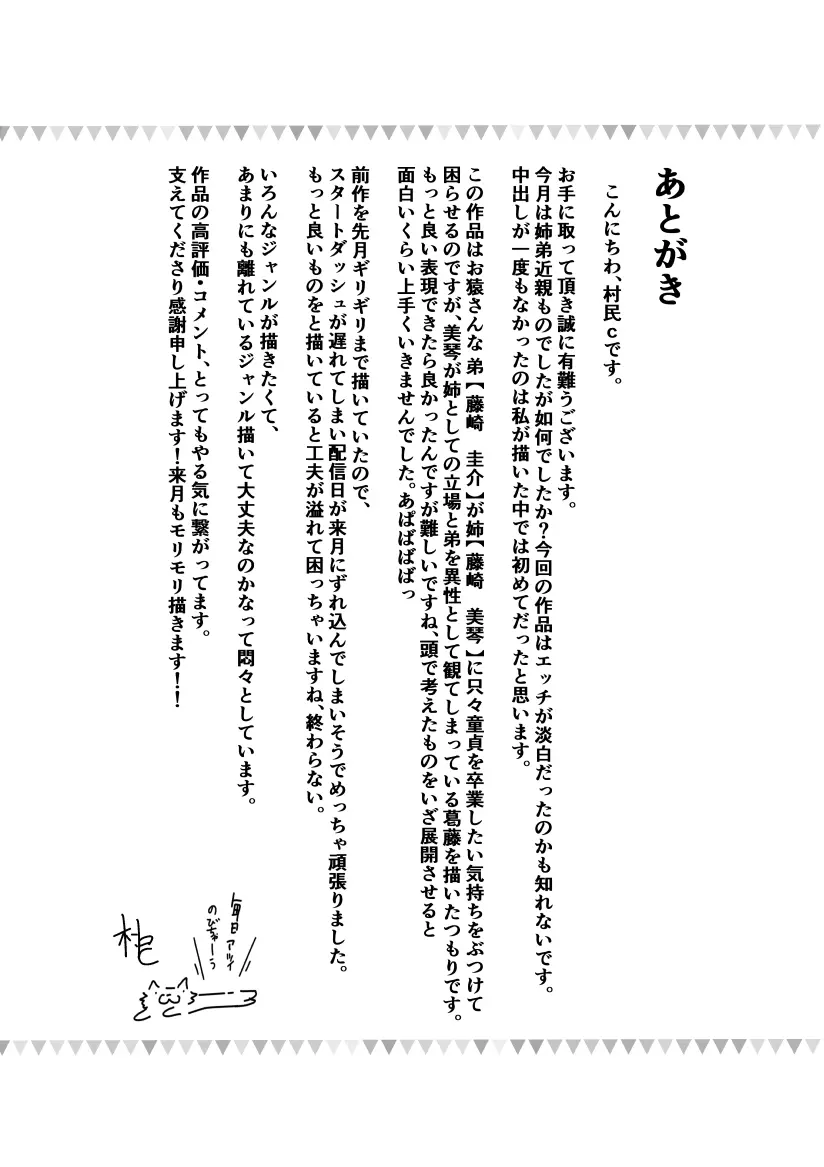 あとがき
こんにちわ、村民cです。
お手に取って頂き誠に有難うございます。
今月は姉弟近親ものでしたが如何でしたか？今回の作品はエッチが淡白だったのかも知れないです。
中出しが一度もなかったのは私が描いた中では初めてだったと思います。
この作品はお猿さんな 弟【藤崎　圭介】が姉【藤崎　美琴】に只々童貞を卒業したい気持ちをぶつけて
困らせるのですが、美琴が姉としての立場と弟を異性として観てしまっている葛藤を描いたつもりです。
もっと良い表現できたら良かったんですが難しいですね、頭で考えたものをいざ展開させると
面白いくらい上手くいきませんでした。あぱばばばっ
前作を先月ギリギリまで描いていたので、
スタートダッシュが遅れてしまい配信日が来月にずれ込んでしまいそうでめっちゃ頑張りました。
もっと良いものをと描いていると工夫が溢れて困っちゃいますね、終わらない。
いろんなジャンルが描きたくて、
あまりにも離れているジャンル描いて大丈夫なのかなって悶々としています。
作品の高評価・コメント、とってもやる気に繋がってます。
支えてくださり感謝申し上げます！来月もモリモリ描きます！！
毎日アツイ
のびちゃーう
村民